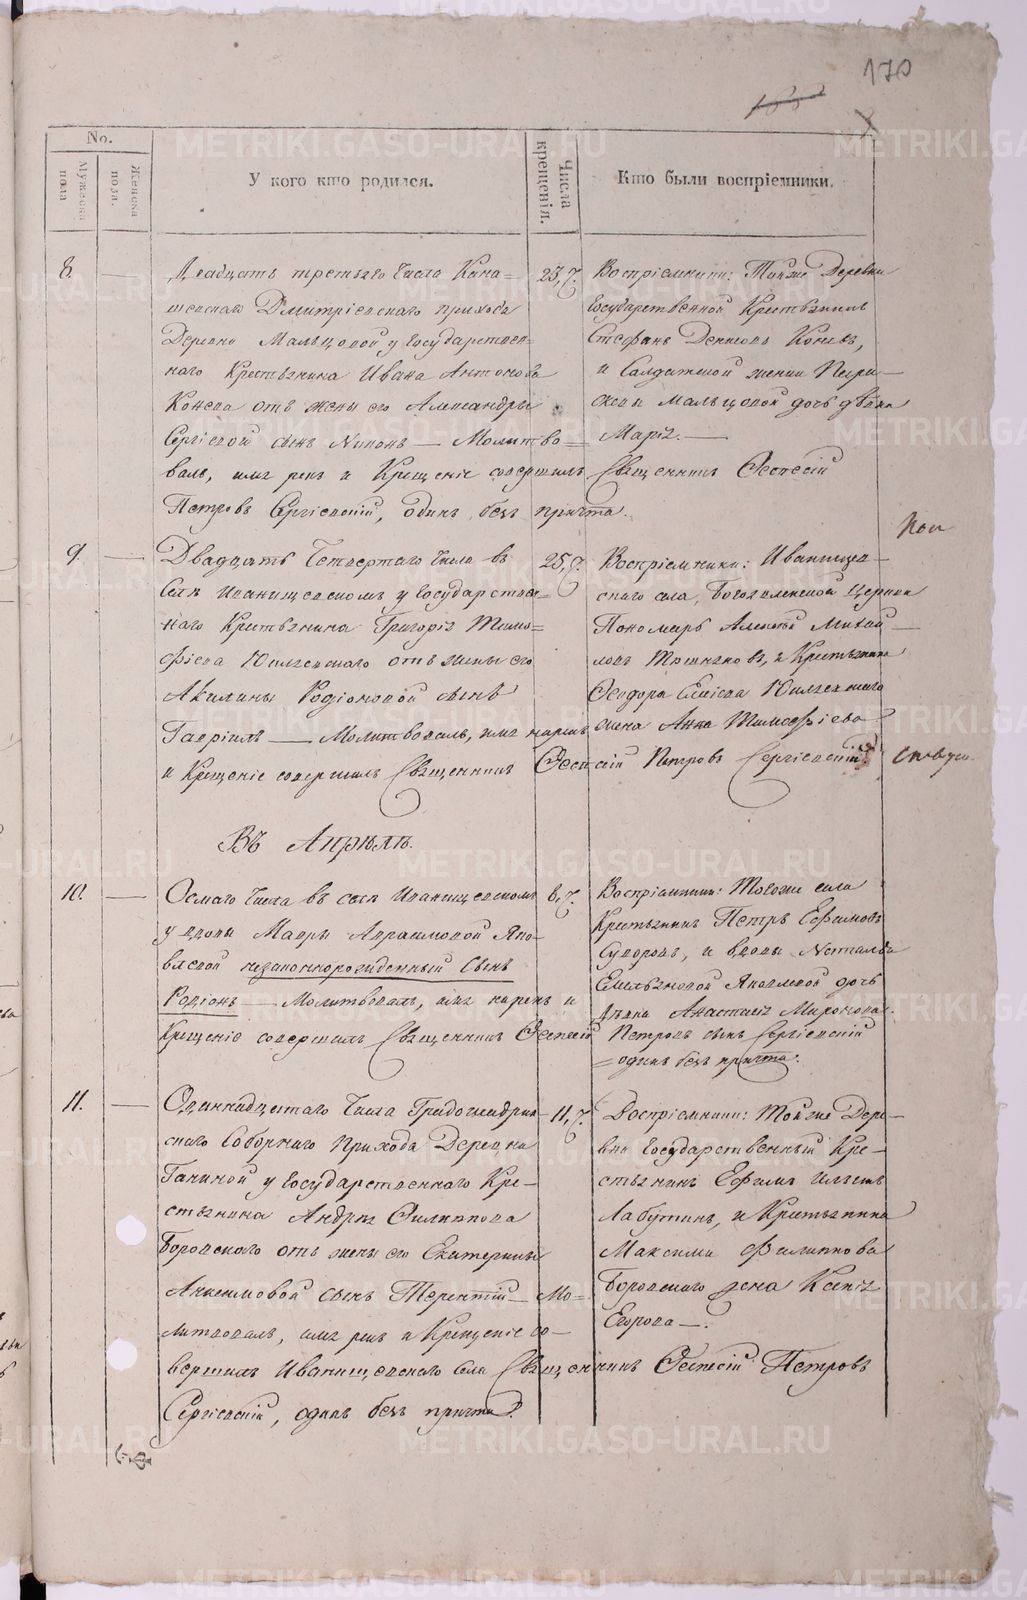 170
No.
Мужеска пола
Женска пола.
У кого кто родился.
Числа крещенія.
Кто были воспріемники.
8.
Двадцать третьяго числа Кана=
шевскаго Дмитріевскаго прихода
Деревни Мальцовой у Государствен-
наго Крестьянина Ивана Антонова
Конева отъ жены его Александры
Сергіевой сынъ Никонъ — Молитво-
валъ, имя рекъ и Крещеніе совершилъ Священникъ
Петровъ Сергіевскій, одинъ безъ причта.
23,
Воспріемники: Тойже Деревни
Государственной Крестьянинъ
Стефанъ Денисовъ Коневъ,
и Салдатской жены
Мальцовой дочь дѣвка
Марія.—
9.
Двадцать Четвертаго числа въ
Селѣ Иванищевскомъ у Государствен=
наго Крестьянина Григорія Тимо=
фіева отъ жены его
Акилины Родіоновой сынъ
Гавріилъ — Молитвовалъ, имя нарекъ
и Крещеніе совершилъ Священникъ Петровъ Сергіевскій.
25,
Воспріемники: Иванищев-
скаго села, Богоявленской Церкви
Пономарь Алексѣй Михай-
ловъ и Крестьянина
Феодора
жена Анна Тимофіева
Въ Апрѣлѣ.
10.
Осмаго числа въ селѣ Иванищевскомъ
у вдовы Мавры Авраамовой Яко-
влевой незаконнорожденный Сынъ
Родіонъ — Молитвовалъ, имя нарекъ и
Крещеніе совершилъ Священникъ Петровъ сынъ Сергіевскій
=одинъ безъ причта.
8,
Воспріемники: Тогоже села
Крестьянинъ Петръ Ефимовъ
Суворовъ, и вдовы Натальи
Емельяновой Яковлевой дочь
дѣвка Анастасія Миронова.
11.
Одиннадцатаго числа Градошадрин-
скаго Соборнаго прихода Деревни
Ганиной у Государственнаго Кре-
стьянина Андрея Филиппова
Боровскаго отъ жены его Екатерины
Анисимовой сынъ Терентій — Мо-
литвовалъ, имя рекъ и Крещеніе со-
вершилъ Иванищевскаго села Священникъ Петровъ
Сергіевскій, одинъ безъ причта.
11,
Воспріемники: Тойже Дере-
вни Государственный Кре-
стьянинъ Ефимъ Ильинъ
Лабутинъ, и Крестьянина
Максима Филиппова
Боровскаго жена Ксенія
Егорова —.
METRIKI.GASO-URAL.RU